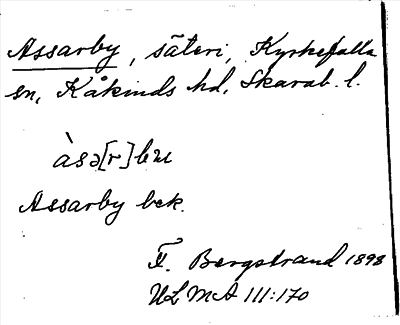 Assarby, säteri, Kyrkefalla
sn, Kåkinds hd, Skarab. l.
àsə[r]bʏ
Assarby bek.
F. Bergstrand 1898
ULMA 111:170